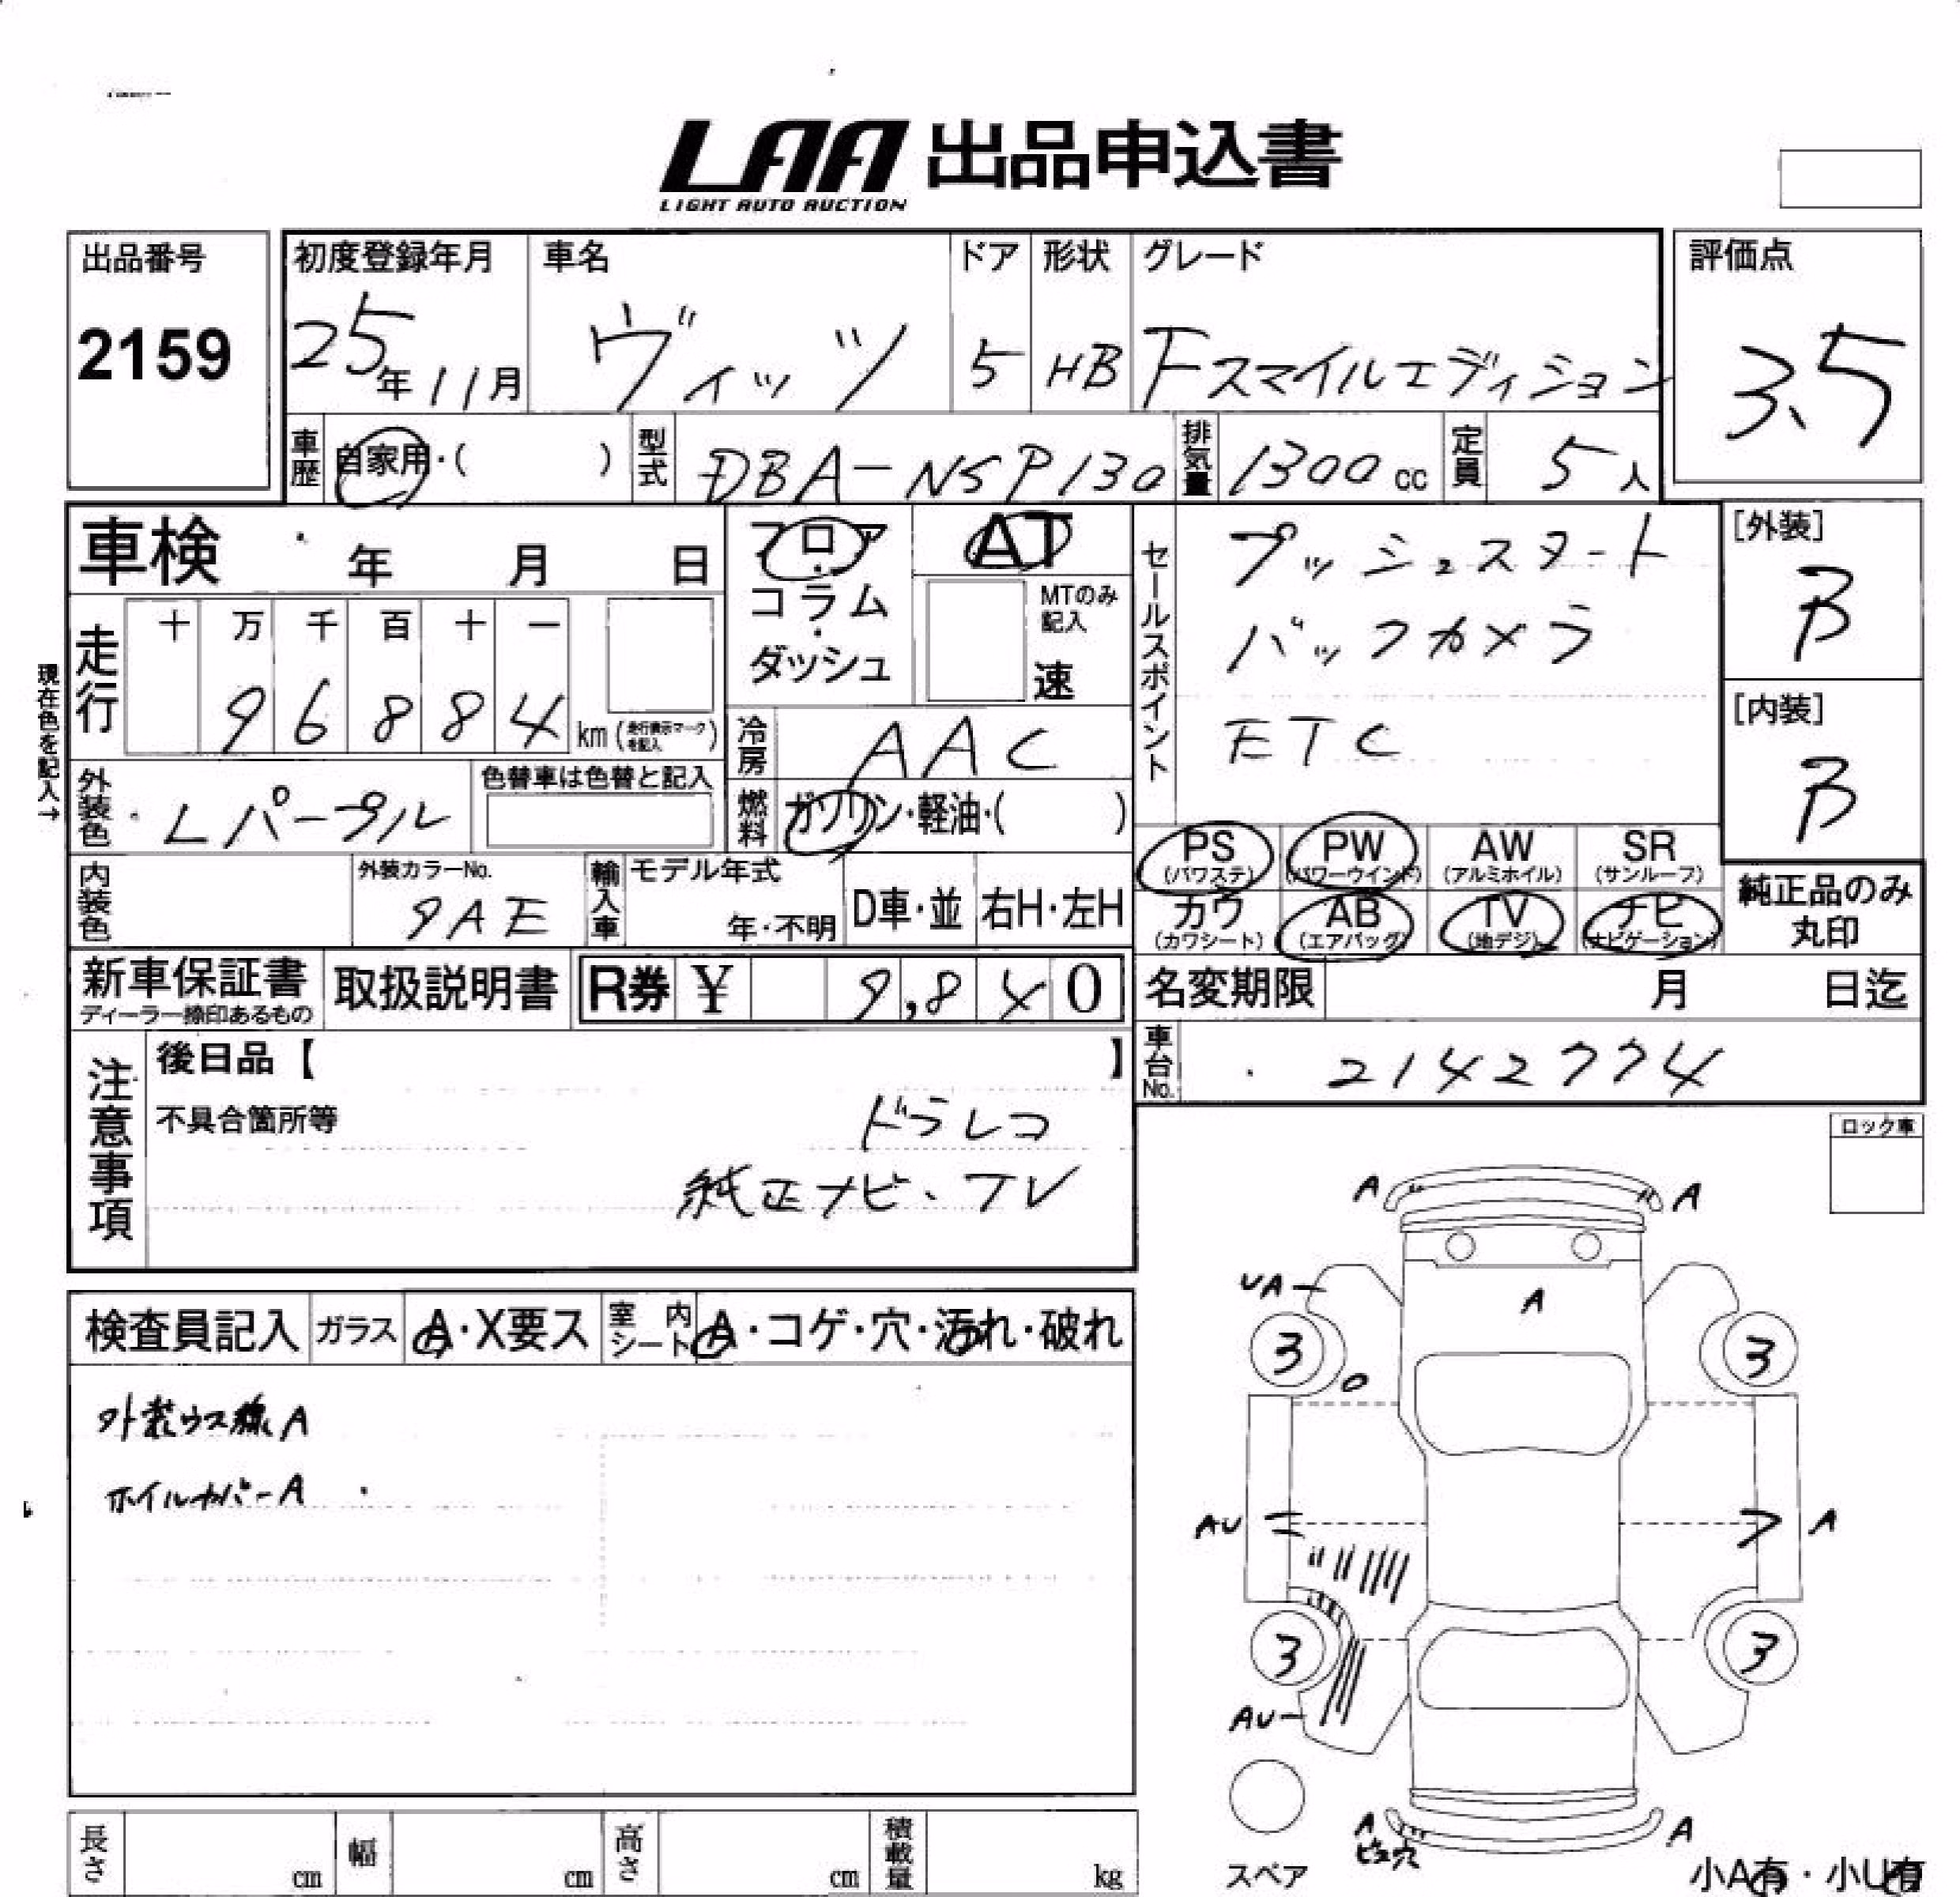 LAA 出品申込書
LIGHT AUTO AUCTION
出品番号
2159
初度登録年月
25年11月
車名
ヴィッツ
ドア
5
形状
HB
グレード
Fスマイルエディション
評価点
3.5
車歴
自家用・( )
型式
DBA-NSP130
排気量
1300cc
定員
5人
車検 年 月 日
フロア・コラム・ダッシュ
AT
MTのみ記入
速
セールスポイント
プッシュスタート
バックカメラ
ETC
[外装]
B
[内装]
B
現在色を記入→
走行
十 万 千 百 十 一
9 6 8 8 4 km(走行表示マークを記入)
冷房
AAC
外装色
Lパープル
色替車は色替と記入
燃料
ガソリン・軽油・( )
PS (パワステ)
PW (パワーウインド)
AW (アルミホイル)
SR (サンルーフ)
カワ (カワシート)
AB (エアバッグ)
TV (地デジ)
ナビ (ナビゲーション)
純正品のみ丸印
内装色
外装カラーNo.
9AE
輸入車
モデル年式
年・不明
D車・並
右H・左H
新車保証書
ディーラー捺印あるもの
取扱説明書
R券 ¥ 9,840
名変期限 月 日迄
車台No.
2142774
注意事項
後日品【 】
不具合箇所等
ドラレコ
純正ナビ、TV
ロック車
検査員記入
ガラス
A・X要ス
室内シート
A・コゲ・穴・汚れ・破れ
外装ウス線A
ホイルカバーA
A A
UA
A
3 3
0
AU A
3 3
AU
A A
ピュ穴
スペア
小A有・小U有
長さ cm
幅 cm
高さ cm
積載量 kg